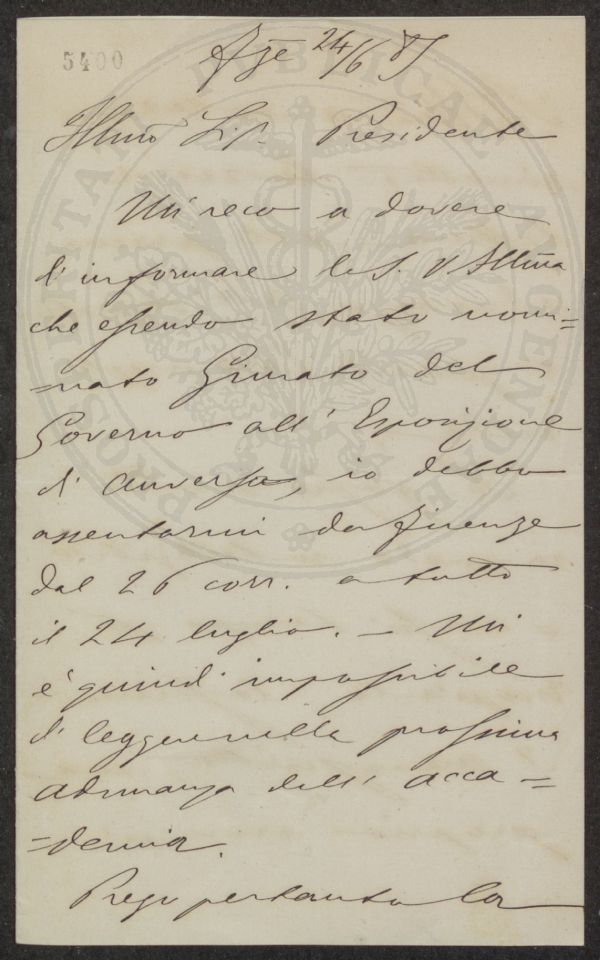 5400
24/6 85
Illmo Sig. Presidente
Mi reco a dovere
d'informare la S. V Illma
che essendo stato nomi=
=nato Giurato del
Governo all' Esposizione
di Anversa, io debbo
assentarmi da Firenze
dal 26 corr. a tutto
il 24 luglio. — Mi
è quindi impossibile
di leggere nella prossima
adunanza dell' acca=
=demia.
Prego pertanto la
PROSPERITATI PUBLICAE AUGENDAE